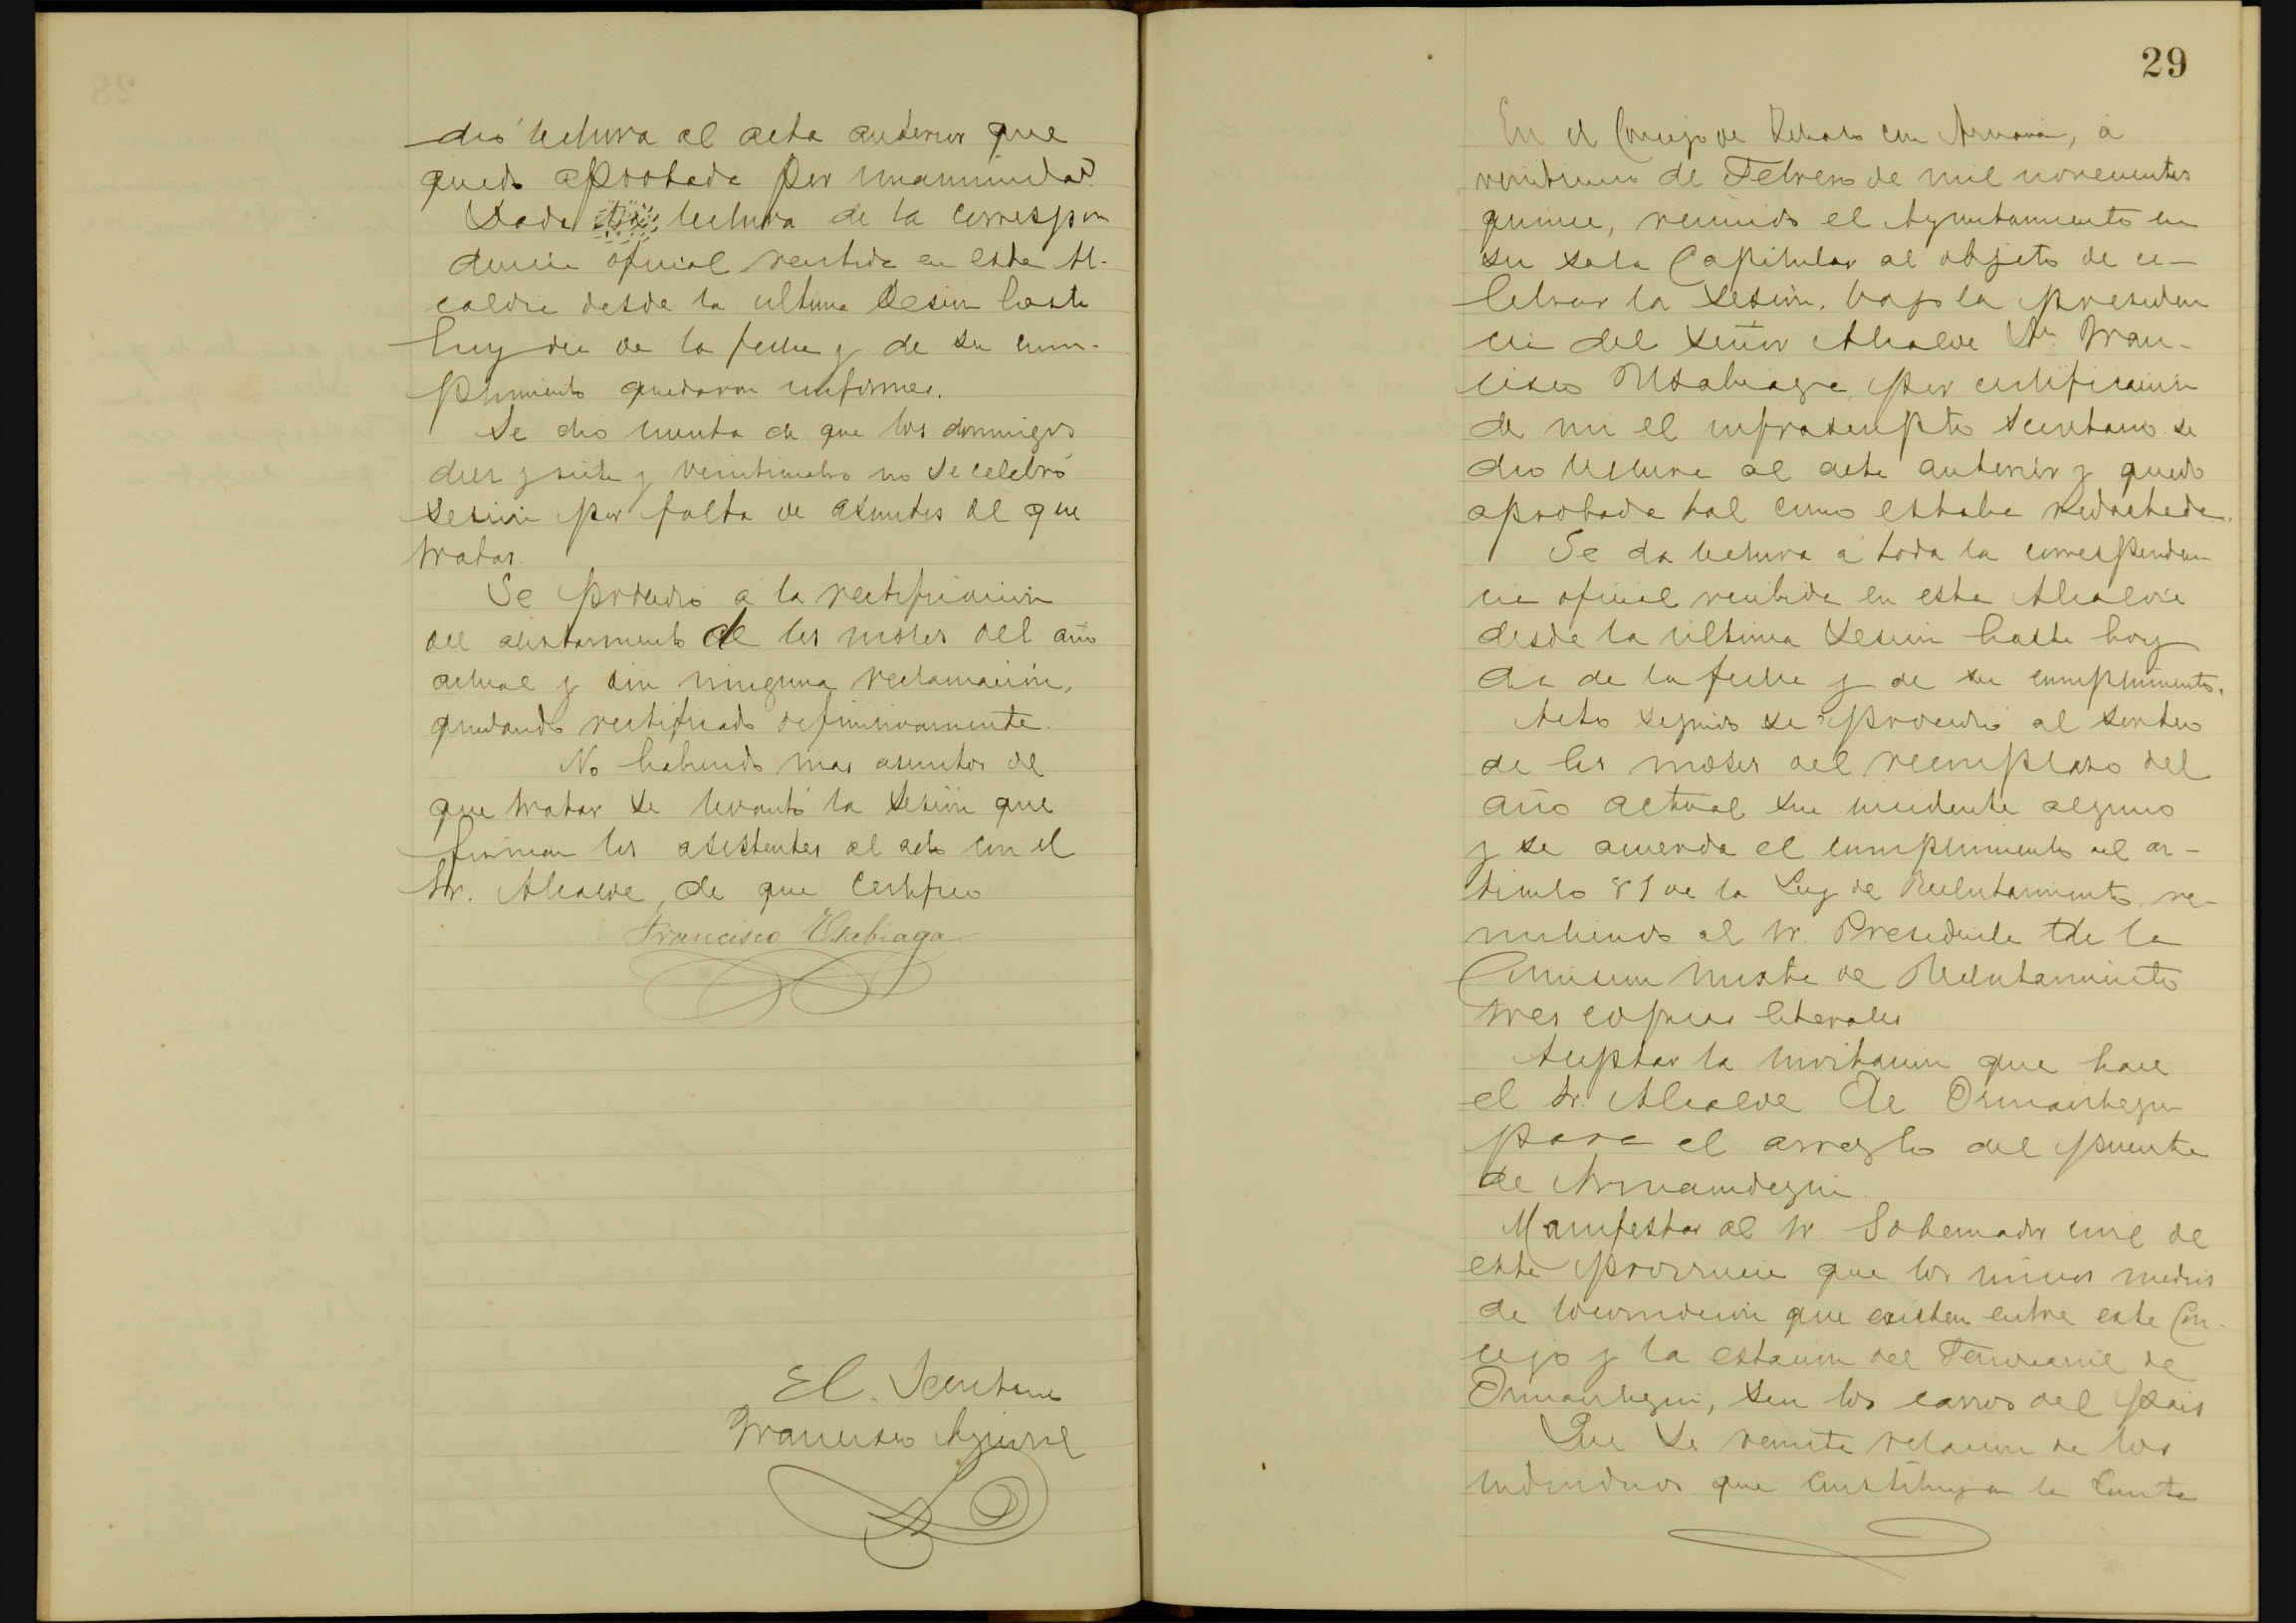 dió lectura al acta anterior que
quedo aprobada por unanimidad.
Dada lectura de la correspon
dencia oficial recibida en esta Al-
caldia desde la ultima Sesion hasta
hoy dia de la fecha y de su cum-
plimiento quedaron informes.
Se dio cuenta de que los domingos
diez y siete y veinticuatro no se celebró
sesion por falta de asuntos de que
tratar.
Se procedio a la rectificacion
del alistamiento de los mozos del año
actual y sin ninguna reclamación,
quedando rectificado definitivamente.
No habiendo mas asuntos de
que tratar se levantó la Sesión que
firman los asistentes al acto con el
Sr. Alcalde, de que Certifico
Francisco Usabiaga
El Secretario
Francisco Aguirre
29
En el Concejo de en, á
de Febrero de mil novecientos
quince, reunido el Ayuntamiento en
su Sala Capitular al objeto de ce-
lebrar la Sesión, bajo la presiden
cia del Señor Alcalde Dn Fran-
cisco Usabiaga, por certificación
de mi el infrascripto Secretario se
dio lectura al acta anterior y quedo
aprobada tal como estaba redactada.
Se da lectura á toda la corresponden-
cia oficial recibida en esta Alcaldia
desde la última Sesion hasta hoy
dia de la fecha y de su cumplimiento.
Acto seguido se procedió al sorteo
de los mozos del reemplazo del
año actual sin incidente alguno
y se acuerda el cumplimiento del ar-
ticulo 81 de la Ley de Reclutamiento, re-
mitiendo al Sr. Presidente de la
Comision mixta de Reclutamiento
tres copias literales
Aceptar la invitacion que hace
el Sr. Alcalde de Ormaiztegui
para el arreglo del puente
de
Manifestar al Sr. Gobernador civil de
esta provincia que los únicos medios
de locomoción que existen entre este Con-
cejo y la estacion del Ferrocarril de
Ormaiztegui, son los carros del pais
Que se remita relacion de los
individuos que constituyen la Junta